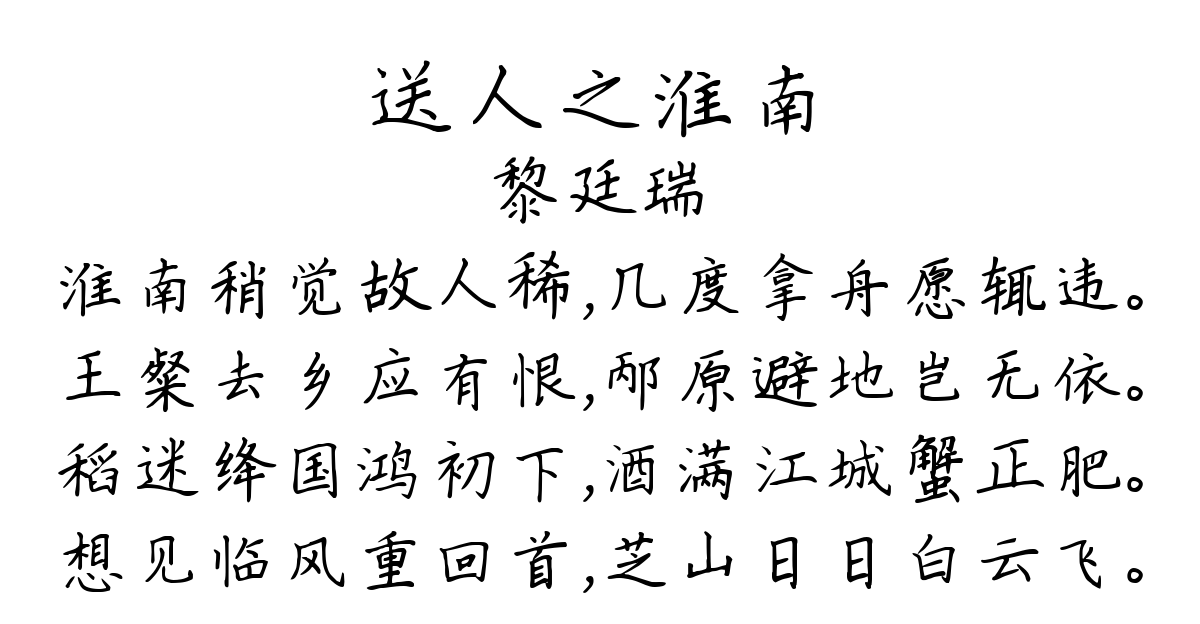 送人之淮南
黎廷瑞
淮南稍觉故人稀,几度拿舟愿辄违。
王粲去乡应有恨,邴原避地岂无依。
稻迷绛国鸿初下,酒满江城蟹正肥。
想见临风重回首,芝山日日白云飞。